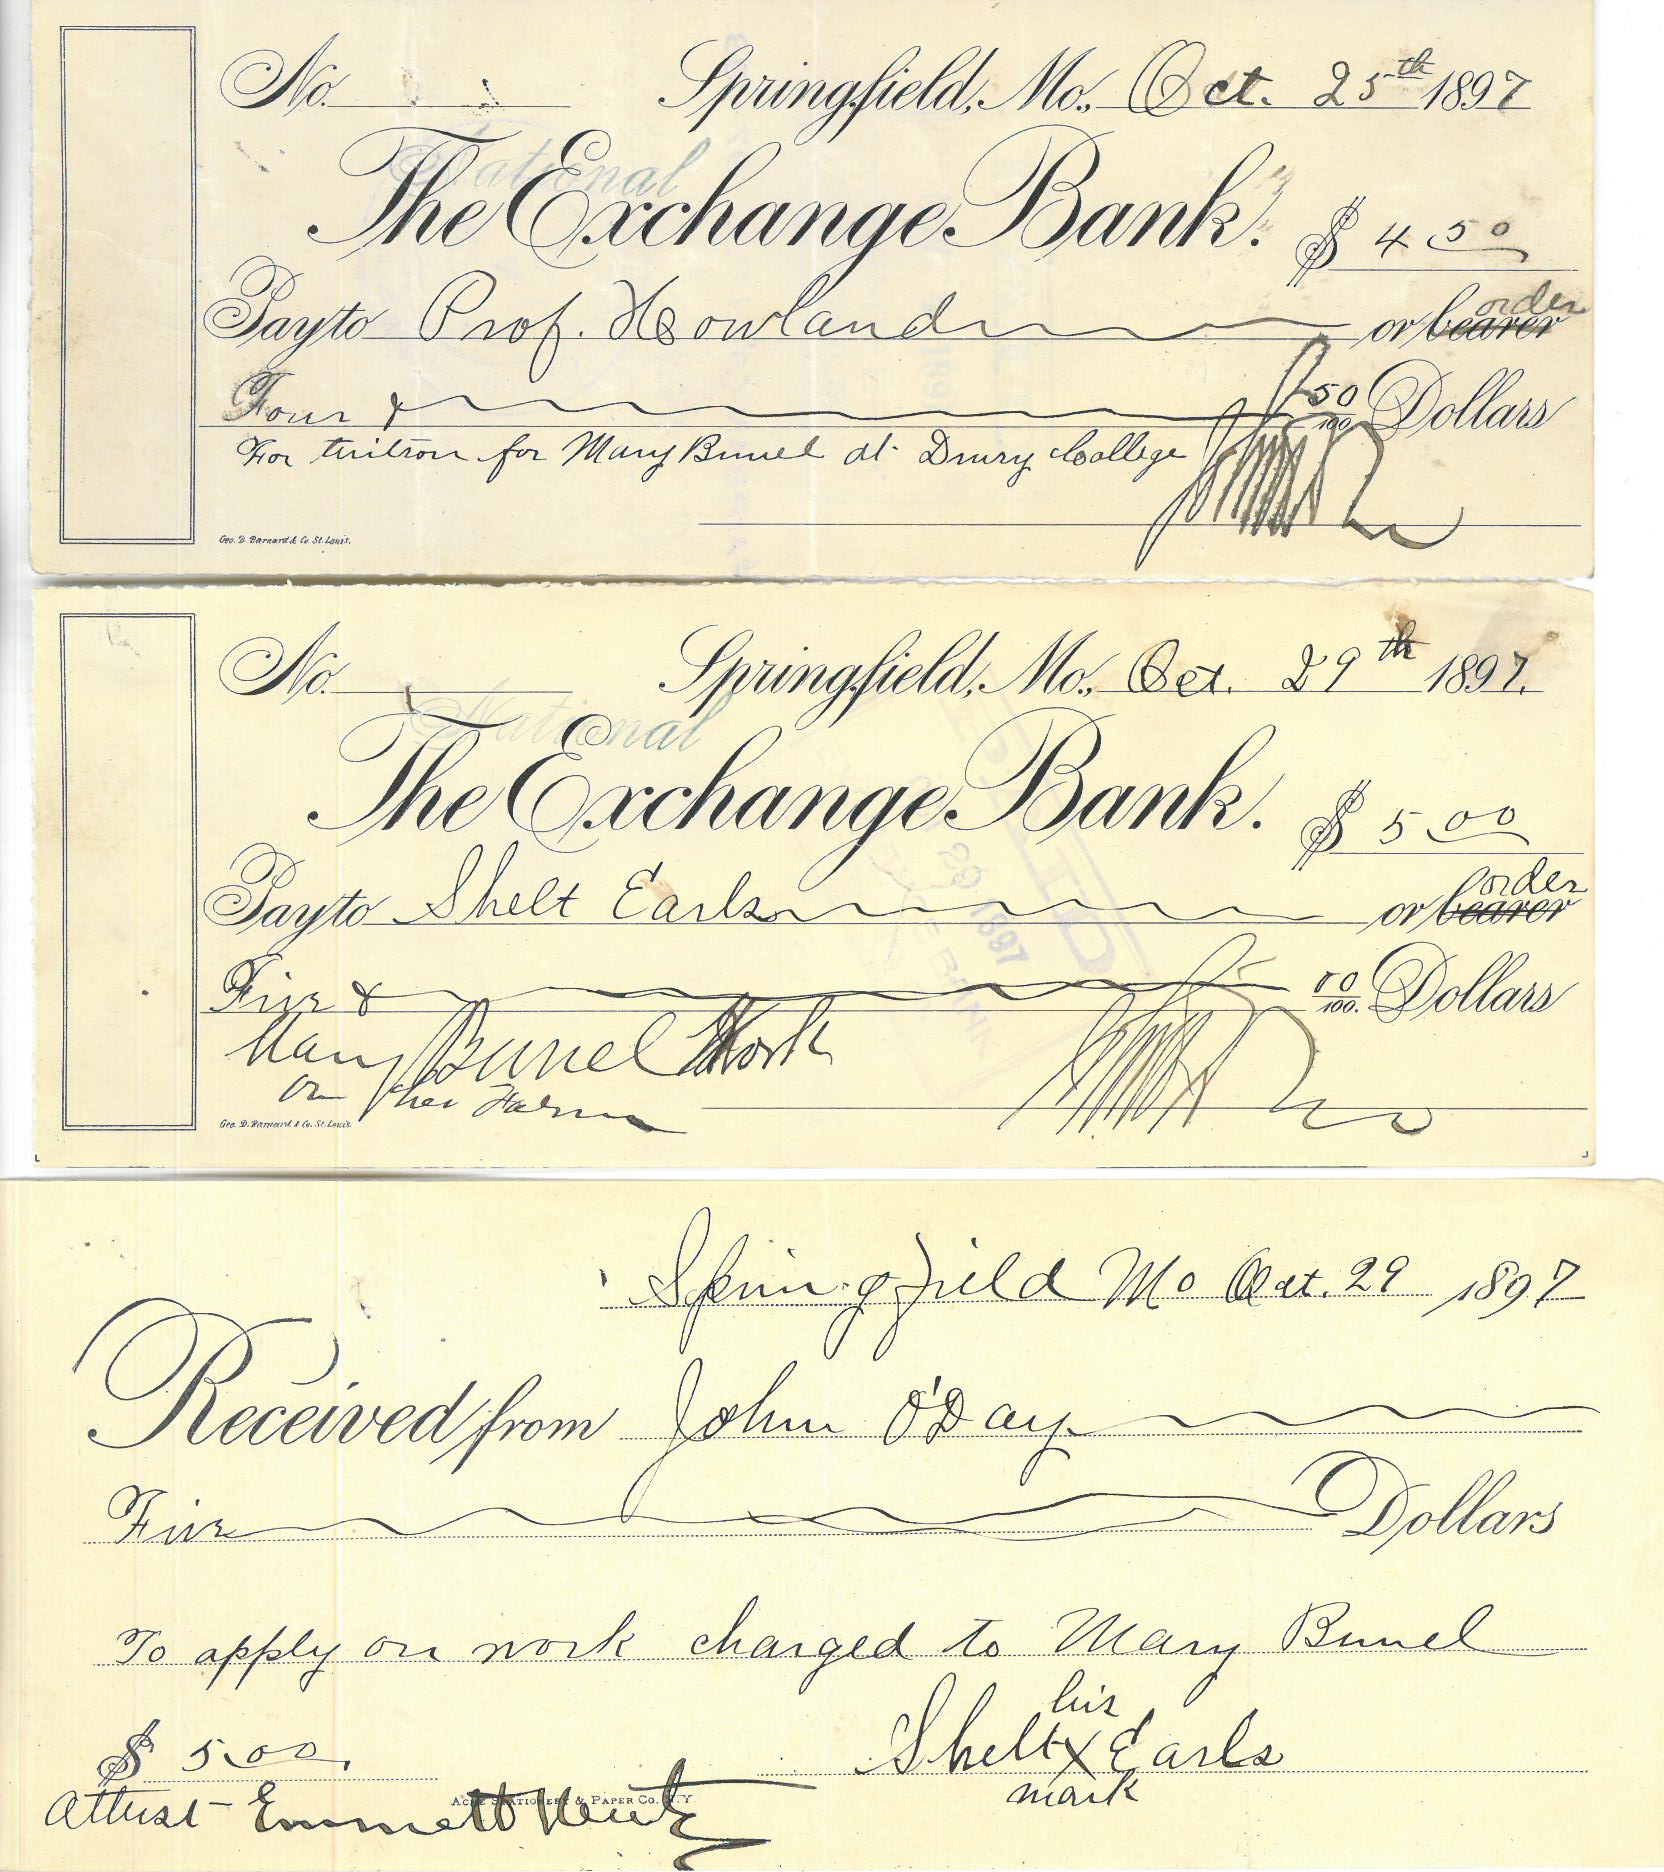 No. Springfield, Mo., Oct. 25th 1897
National
The Exchange Bank.
$ 4 50
Pay to Prof. Howland or bearer order
Four & 50/100 Dollars
For tuition for Mary Bunel at Drury College
Geo. D. Barnard & Co. St. Louis.
No. Springfield, Mo., Oct. 29th 1897.
National
The Exchange Bank.
$ 5 00
Pay to Shelt Earls or bearer order
Five & 00/100. Dollars
Mary Bunel Work
on her Farm
Geo. D. Barnard & Co. St. Louis.
Springfield Mo Oct. 29 1897
Received from John O'Day
Five Dollars
To apply on work charged to Mary Bunel
his
Shelt X Earls
mark
$ 5.00.
Attest - Emmett
Acme Stationery & Paper Co. N.Y